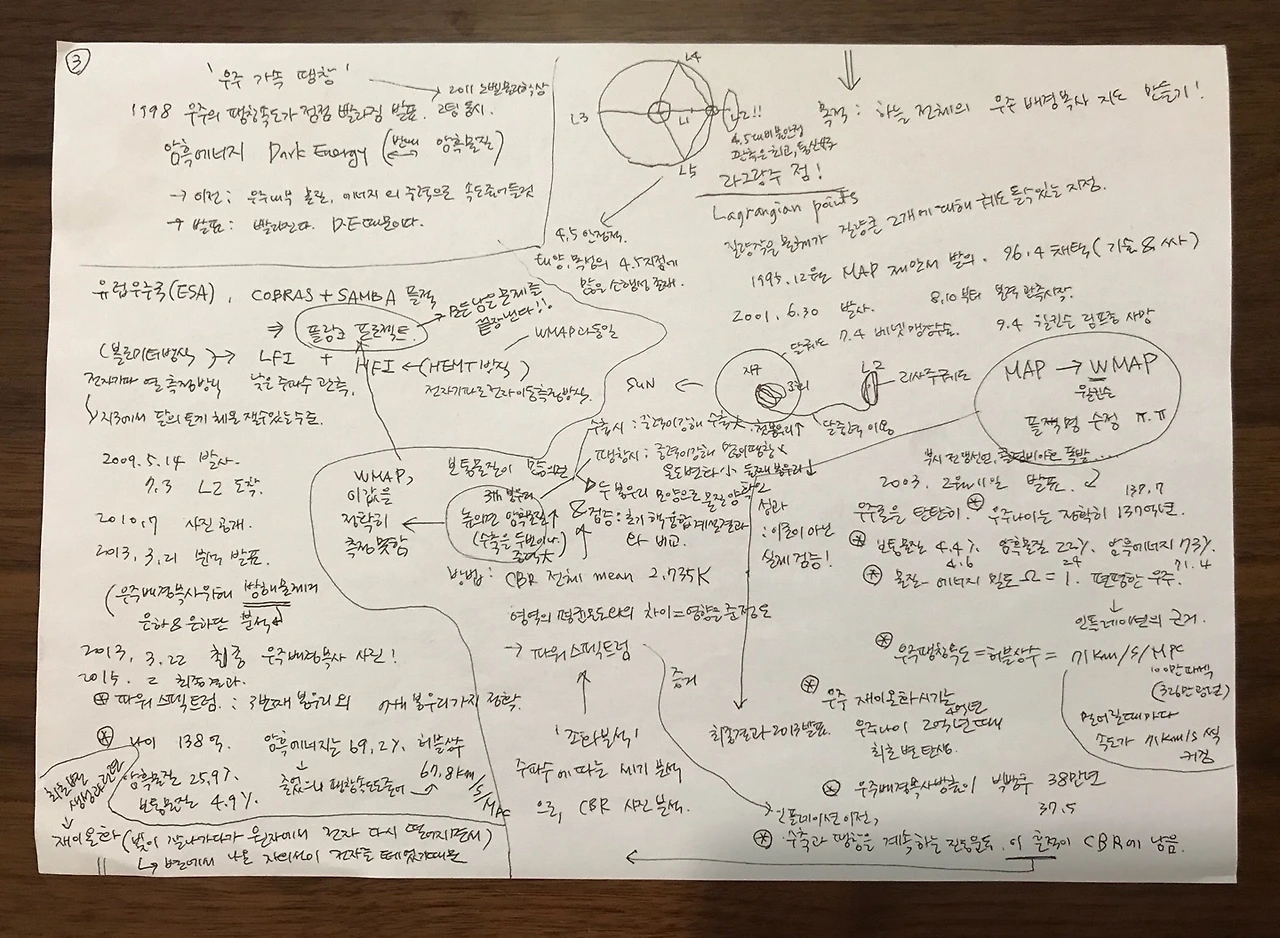 ③
'우주 가속 땡창'
→ 2011 노벨물리학상
1998 우주의 팽창속도가 점점 빨라짐 발표. 2팀 동시.
암흑에너지 Dark Energy (반대 암흑물질)
→ 이전: 우주내부 물질, 에너지의 중력으로 속도줄어들것
→ 발표: 빨라진다. D.E 때문이다.
L4
L3
L1
L2!!
L5
4,5 대비 불안정
관측은 최고, 통신
라그랑주 점!
Lagrangian points
질량작은 물체가 질량큰 2개에 대해 궤도 돌수있는 지점.
4,5 안정적.
태양, 목성의 4,5지점에
많은 소행성 존재.
목적: 하늘 전체의 우주배경복사 지도 만들기!
1995.12월 MAP 제안서 발의. 96.4 채택(기술 & 싸)
2001. 6.30 발사. 8.10부터 본격 관측시작.
달궤도
7.4 베넷 맹장수술. 9.4 윌킨슨 림프종 사망
SUN ←
지구
3회
L2
리사주궤도
달중력 이용
MAP → WMAP
윌킨슨
플젝명 수정 ㅠ.ㅠ
유럽우주국(ESA), COBRAS + SAMBA 플젝
⇒ 플랑크 프로젝트. → 모든 남은 문제를
끝장낸다!!
WMAP과 동일
(볼로미터방식) → LFI + HFI ← (HEMT방식)
전자기파 열 측정방식 낮은 주파수 관측,
전자기파로 전자이동측정방식.
↳ 지구에서 달의 토끼 체온 잴수있는수준.
2009.5.14 발사.
7.3 L2 도착.
2010.7 사진공개.
2013.3.21 분석 발표.
(우주배경복사위해 방해물제거
은하 & 은하단 분석
2013. 3.22 최종 우주배경복사 사진!
2015. 2 최종결과.
⊛ 파워스펙트럼: 3번째 봉우리 외 n개 봉우리까지 정확.
⊛ 나이 138억. 암흑에너지는 69.2% 허블상수
줄었으니 팽창속도도 줄어 → 67.8km/s/Mpc
암흑물질 25.9%
보통물질 4.9%
최초별
생성과 관련
재이온화 (빛이 잘 나가다가 원자에서 전자 다시 떨어지면서)
↳ 별에서 나온 자외선이 전자를 떼었기때문
WMAP,
이값을
정확히
측정못함
보통물질이 많으면
수축시: 중력이강해 수축大, 첫봉우리↑
팽창시: 중력이강해 덜의팽창
온도변화小 둘째봉우리↓
3th 봉우리
높으면 암흑물질↑
(수축은 두번이나.
중력大
두 봉우리 모양으로 물질양확인
& 검증: 초기 핵융합 계산결과
와 비교.
성과
: 이론이 아닌
실제 검증!
방법: CBR 전체 mean 2.735K
영역의 평균온도와의 차이 = 영향을 준정도
→ 파워스펙트럼
'조화분석'
주파수에 따른 세기 분석
으로, CBR 사진 분석.
증거
최종결과 2013발표.
부시 전쟁선언, 콜럼비아호 폭발...
2003. 2월 11일 발표.
137.7
우주론을 탄탄히. ⊛ 우주나이는 정확히 137억년.
⊛ 보통물질 4.4% 암흑물질 22% 암흑에너지 73%
4.6 24 71.4
⊛ 물질-에너지 밀도 Ω = 1. 편평한 우주.
↓
인플레이션의 근거.
⊛ 우주팽창속도 = 허블상수 = 71km/s/MPC
100만파섹
(326만광년)
멀어질때마다
속도가 71km/s 씩
커짐
⊛ 우주 재이온화시기는
4억년
우주나이 2억년때
최초별탄생.
⊛ 우주배경복사방출이 빅뱅후 38만년
37.5
인플레이션이전,
⊛ 수축과 팽창을 계속하는 진동운동. 이 흔적이 CBR에 남음.